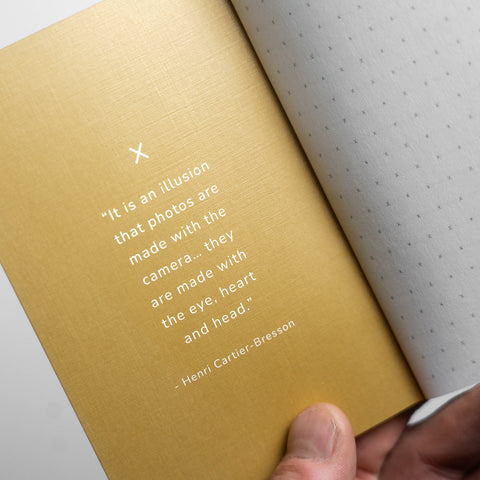 “It is an illusion
that photos are
made with the
camera... they
are made with
the eye, heart
and head.”
- Henri Cartier-Bresson